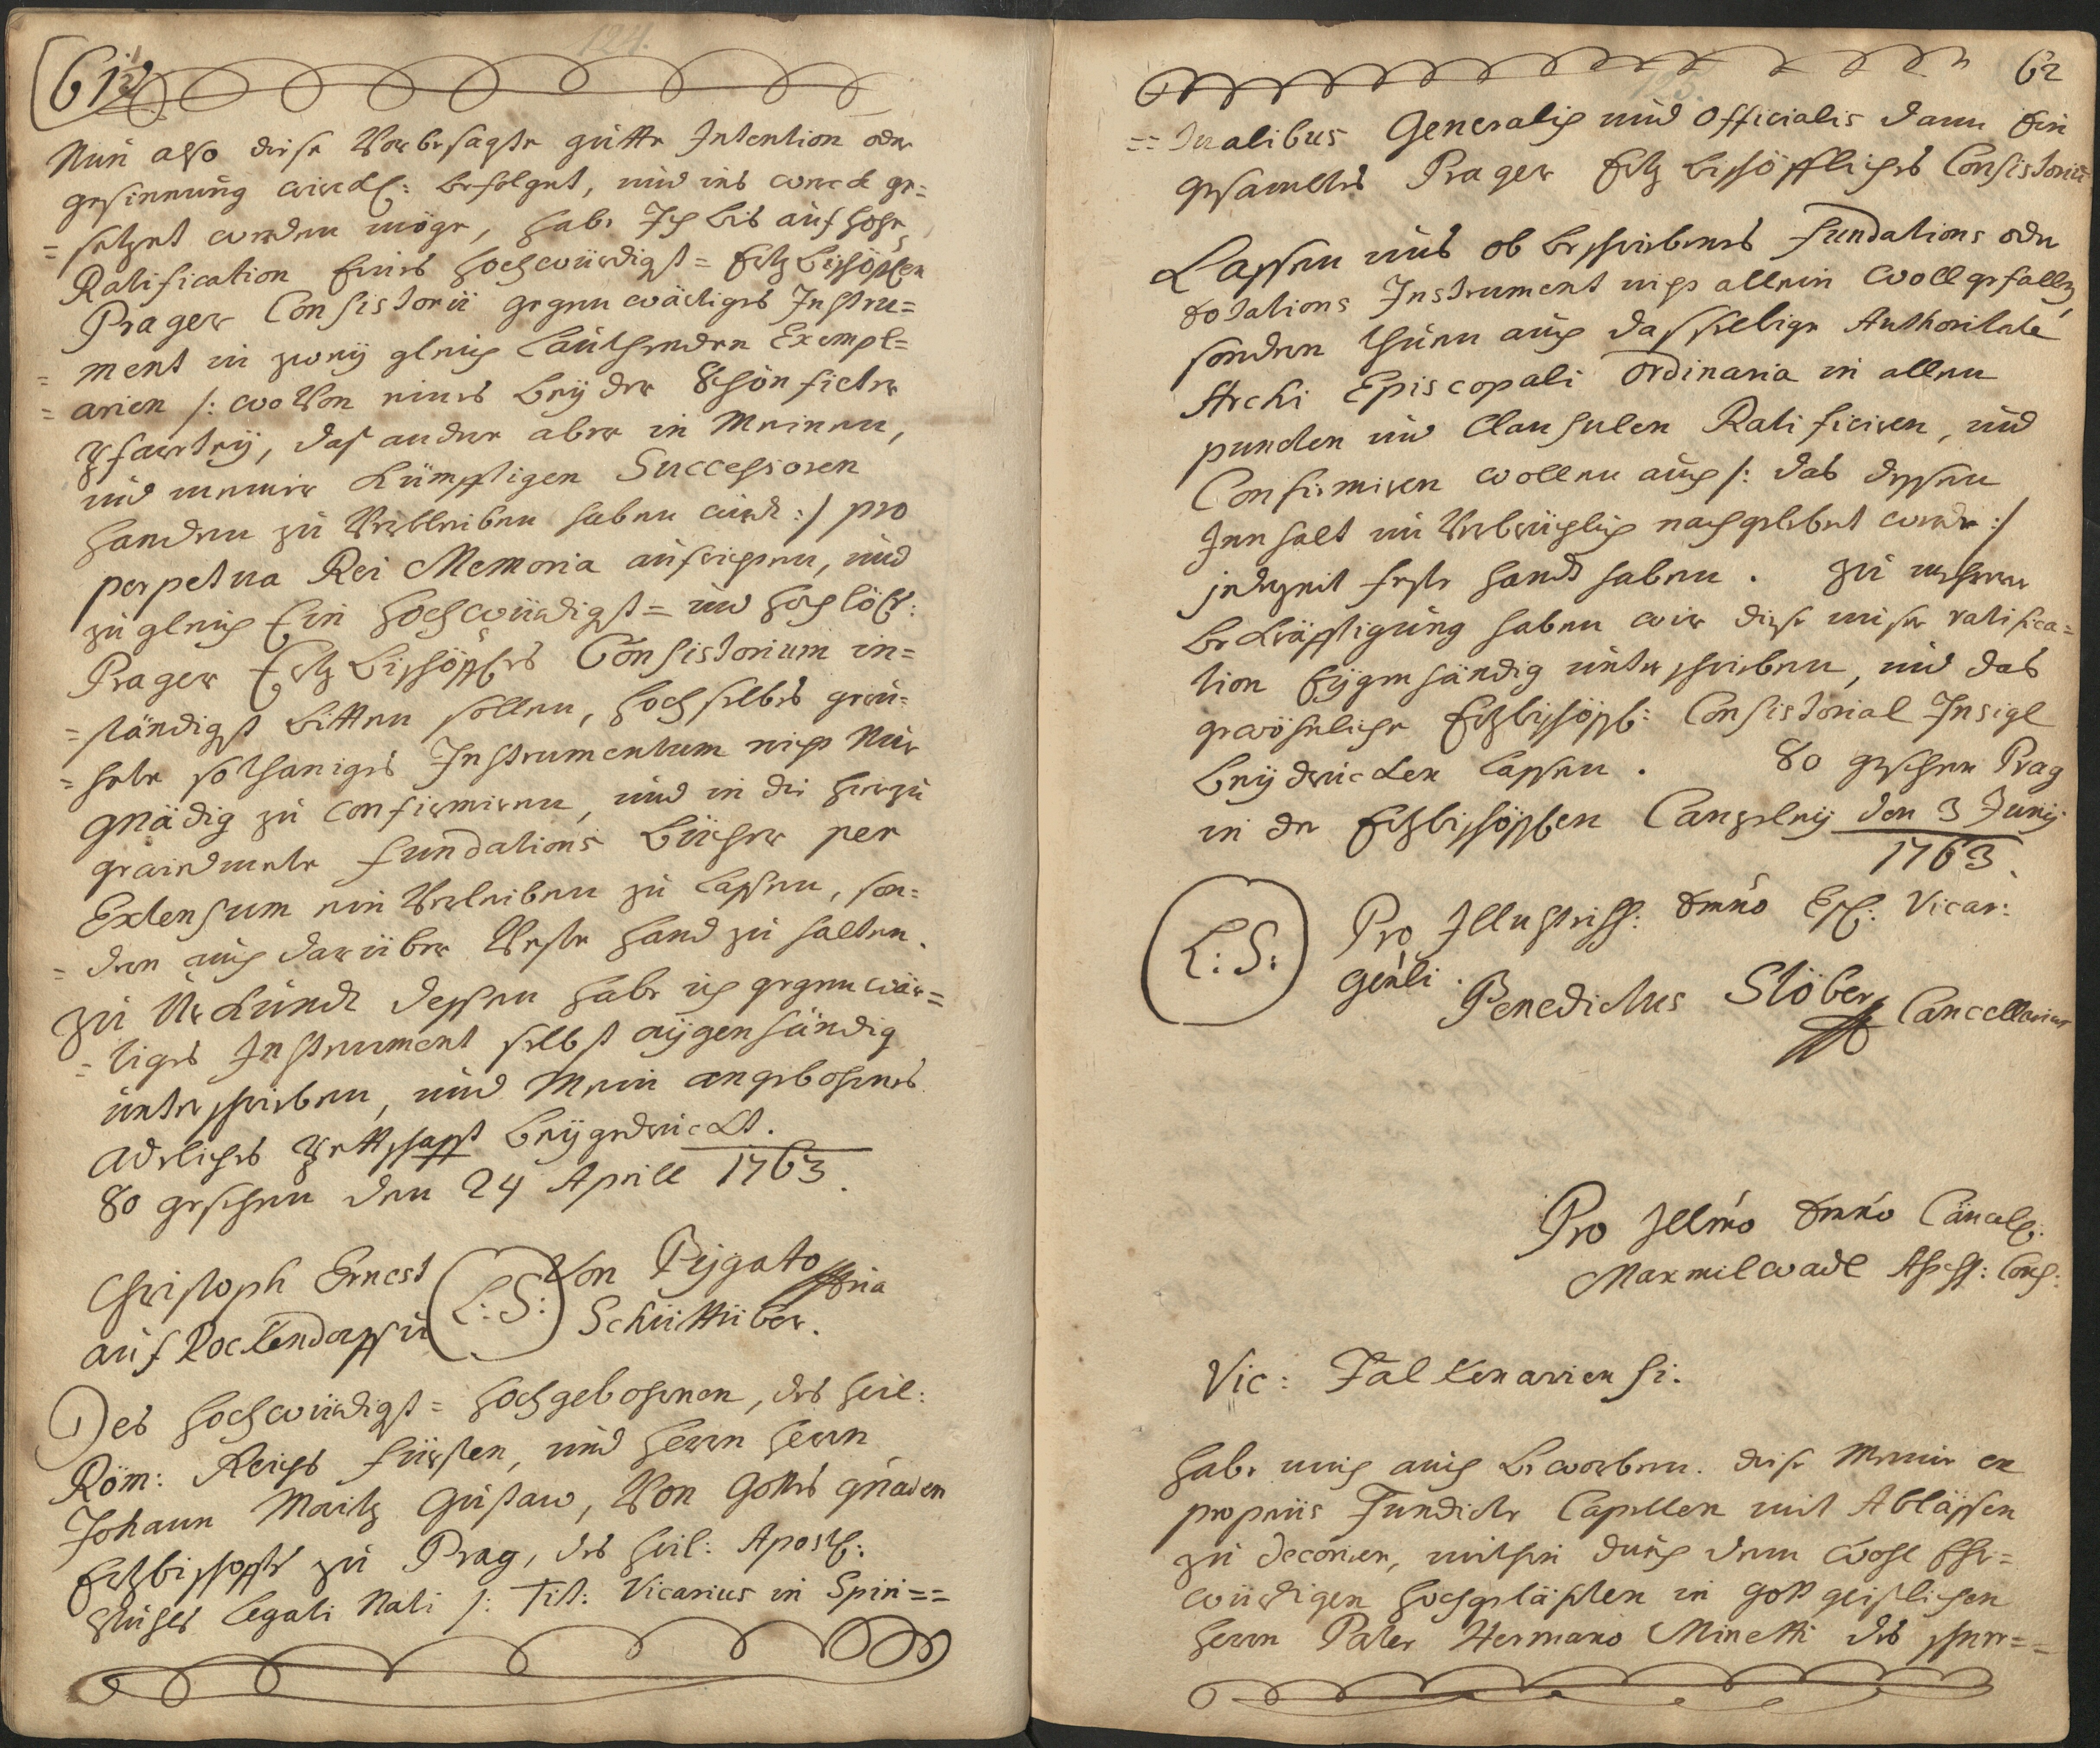 124.
61½
Nun also diese Vorbesagte gutte Intention oder
gesinnung würckl: befolget, und ins werck ge=
= setzet werden möge, habe Ich bis auf hohe
Ratification Eines hochwürdigst= Ertzbischöflen
Prager Consistorii gegenwärtiges Instru=
= ment in zweÿ gleich lauthenden Exempl=
= arien /: woVon eines beÿ der Schönfichter
Pfarteÿ, das andere aber in Meinen,
und meiner künfftigen Successoren
handen zu Verbleiben haben wird :/ pro
perpetua Rei Memoria aufrichten, und
zugleich Ein hochwürdigst= und hochlöbl:
Prager Ertzbischöfles Consistorium in=
= ständigst bitten sollen, hochselbes geru=
= hete sothaniges Instrumentum nicht Nur
Gnädig zu confirmiren, und in die hierzu
gewidmete Fundations bücher per
Extensum ein Verleiben zu lassen, son=
= dern auch darüber Veste hand zu halten.
Zu Urkund dessen habe ich gegenwär=
= tiges Instrument selbst aÿgenhändig
unterschrieben, und Mein angebohrnes
Adeliches Pettschafft beÿgedruckt.
So geschehen den 24 Aprill 1763.
Christoph Ernest (L: S:) Von Pÿgato
auf Rockendorff und Schüttüber.
Des hochwürdigst= hochgebohrnen, des heil:
Röm: Reichs Fürsten, und Herrn Herrn
Johann Moritz Gustaw, Von Gottes gnaden
Ertzbischoffs zu Prag, des heil: Apostl:
Stuhls Legati Nati /: Tit: Vicarius in Spiri==
62
125.
== tualibus Generalis und Officialis dann Ein
gesamtes Prager Ertz bischöffliches Consistorium
Lassen uns ob beschriebenes Fundations oder
Dotations Instrument nicht allein wollgefallen,
sondern thuen auch dasselbige Authoritate
Archi Episcopali Ordinaria in allen
puncten und Clausulen Ratificiren, und
Confirmiren wollen auch /: das dessen
Innhalt unVerbrüchlich nachgelebet werde :/
jederzeit feste hand haben. Zu mehrer
bekräfftigung haben wir diese unser ratifica=
tion Eÿgenhändig unterschrieben, und das
gewöhnliche Ertzbischöfl: Consistorial Insigl
beÿdrucken lassen. So geschehen Prag
in der Ertzbischöflen Cantzeleÿ den 3 Junÿ
1763.
(L: S:) Pro Illustriss: Dmno Vicar:
Genli. Benedictus Stöber Cancellarius
Pro Illmo Dmno Cancell:
Maxmilwadl Assess: Cons:
Vic: Falkenariensi.
Habe mich auch beworben. diese Meine ex
propriis Fundirte Capellen mit Ablässen
zu decoriren, mithin durch dem wohl Ehr=
würdigen hochgeläh<r>ten in gott geistlichen
herrn Pater Hermano Minetti des schwe==